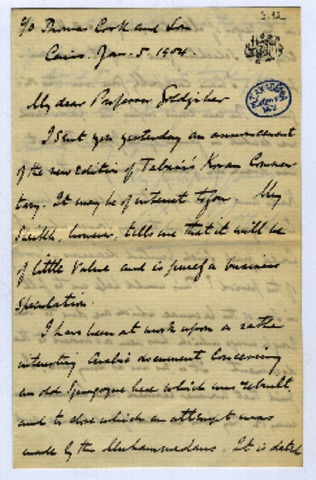 3.12
c/o Thomas Cook and Son
Cairo. Jan. 5. 1904.
My dear Professor Goldziher
I sent you yesterday an announcement
of the new edition of Tabari's Koran Commen
tary. It may be of interest to you. My
Sheikh, however, tells me that it will be
of little value and is purely a business
speculation.
I have been at work upon a rather
interesting Arabic document concerning
an old Synagogue here which was rebuilt
and to close which an attempt was
made by the Muhammedans. It is dated